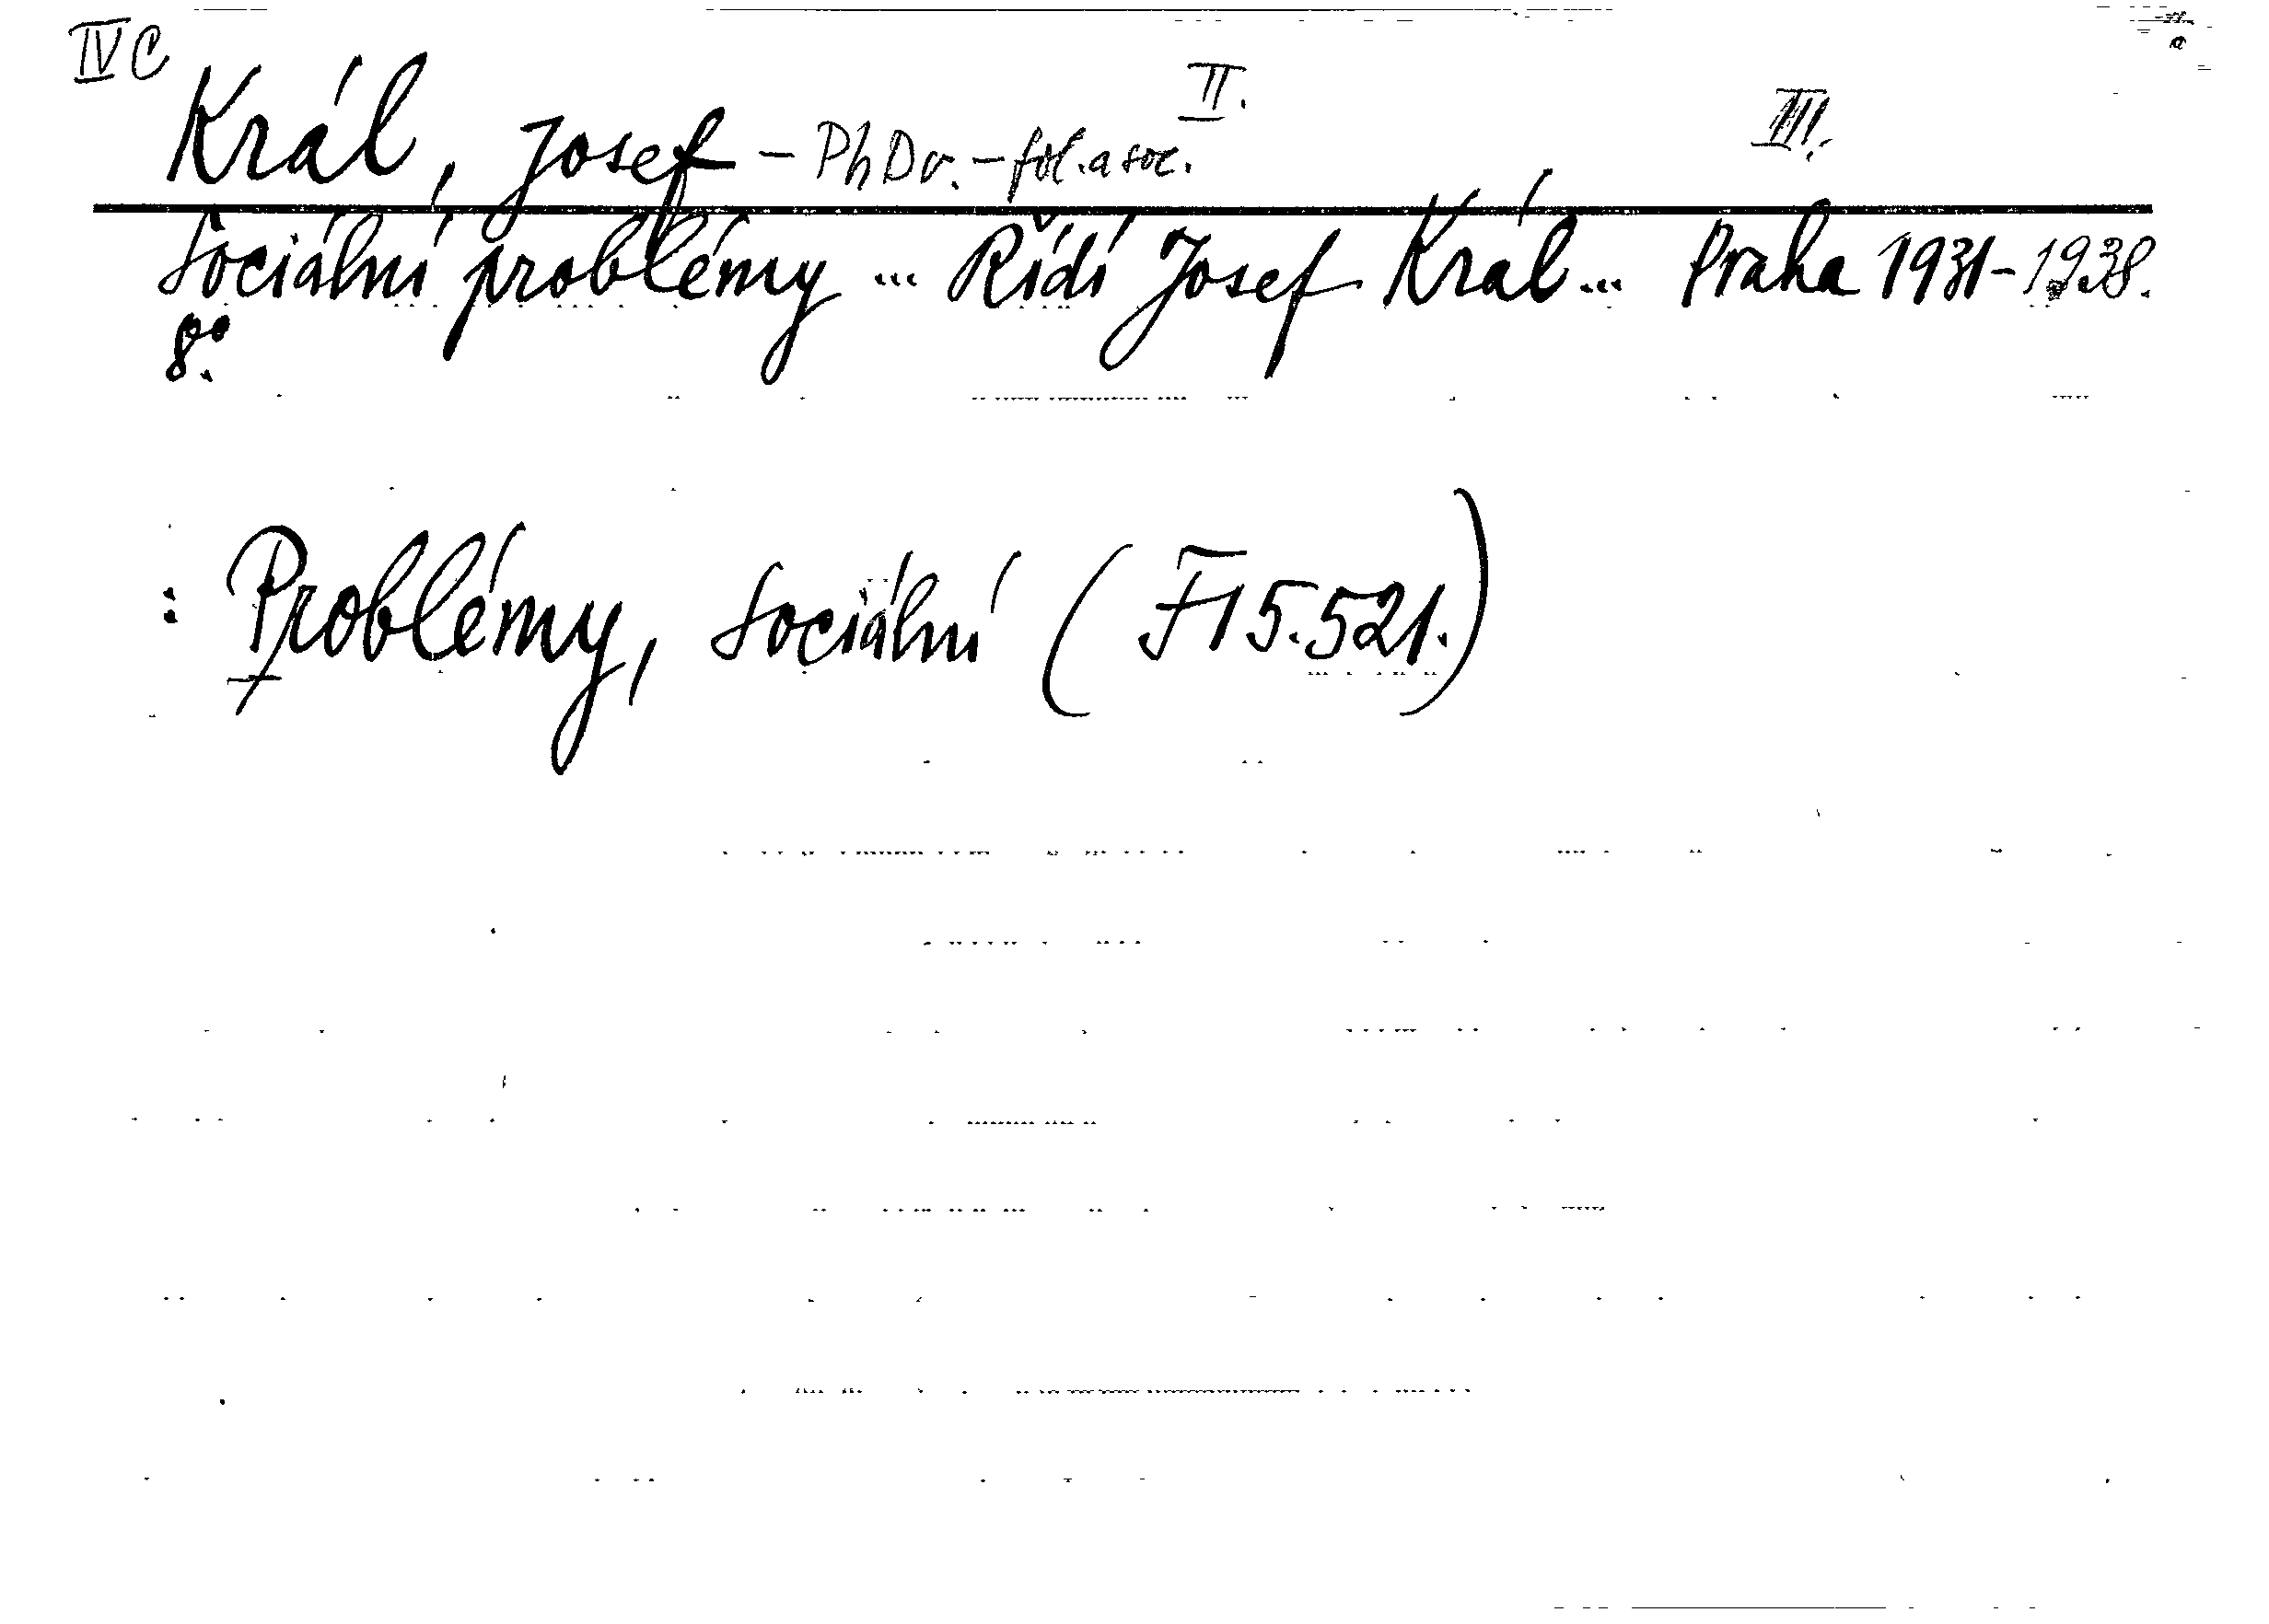 IV C
II.
III.
Král, Josef – PhDr. – fil. a soc.
Sociální problémy ... Řídí Josef Král ... Praha 1931–1938.
8°.
: Problémy, sociální (F 15.521.)